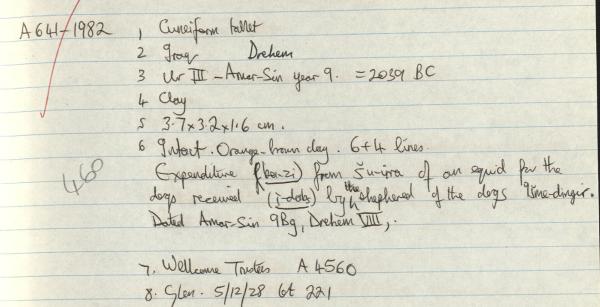 A641-1982 1, Cuneiform tablet
2 Iraq Drehem
3 Ur III - Amar-Sin year 9. = 2039 BC
4 Clay
5 3.7x3.2x1.6 cm.
6 Intact. Orange-brown clay. 6+4 lines.
Expenditure (ba-zi) from Šu-irra of an equid for the
dogs received (i-dab₅) by the shepherd of the dogs Ur-me-dingir.
Dated Amar-Sin 9Bg, Drehem VIII,.
460
7. Wellcome Trustees A 4560
8. Glen. 5/12/28 lot 221